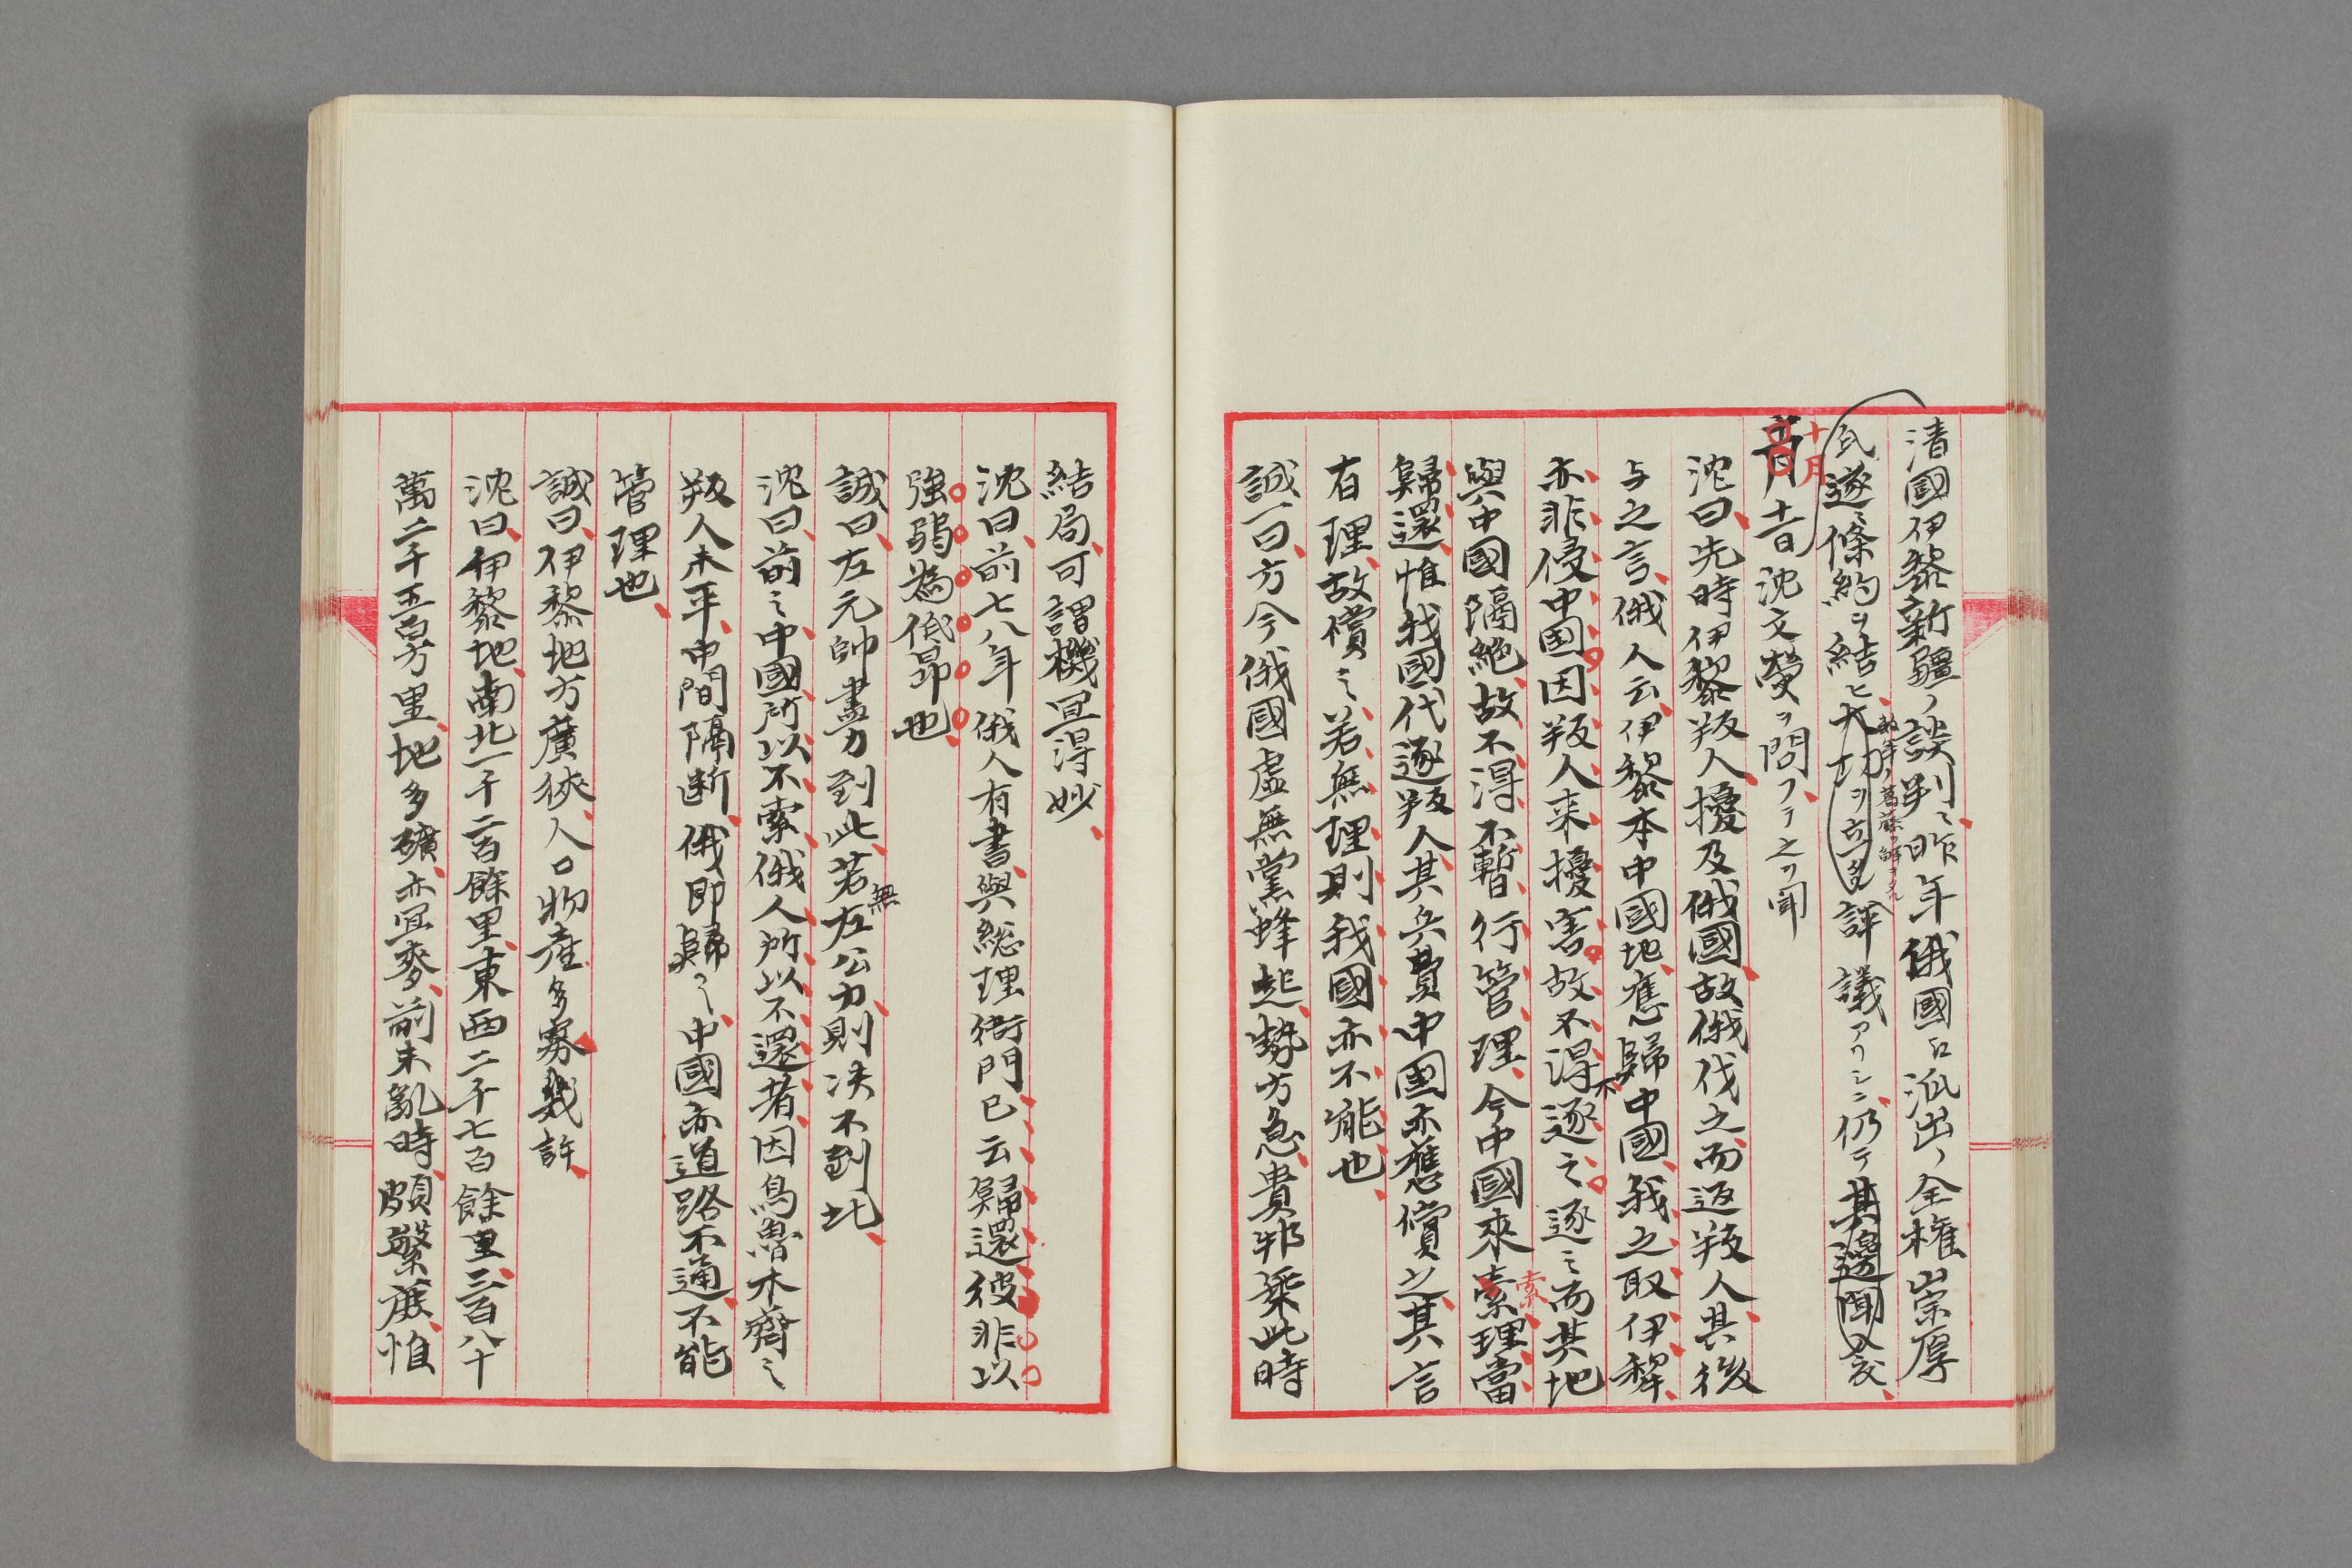 清國伊黎新疆ノ談判ハ昨年俄國ニ派出ノ全權崇厚
氏遂ニ條約ヲ結ヒ大切ヲ立
評議アリシニ仍テ其邊聞
十月
十一日沈文熒ヲ問フテ之ヲ聞
沈曰先時伊黎叛人擾及俄國故俄伐之而返叛人其後
与之言俄人云伊黎本中國地應歸中國我之取伊犂
亦非侵中国因叛人来擾害故不得不逐之逐之而其地
與中國隔絶故不得不暫行管理今中國來索理當
索
歸還惟我國代逐叛人其兵費中国亦應償之其言
有理故償之若無理則我國亦不能也
誠一曰方今俄國虚無黨蜂起勢方急貴邦乘此時
結局可謂機宜得妙
沈曰前七八年俄人有書與総理衙門已云歸還彼非以
強弱為低昂也
誠曰左元帥盡力到此若無左公力則决不到此
沈曰前之中國所以不索俄人所以不還者因烏魯木齊之
叛人未平中間隔断俄即歸之中國亦道路不通不能
管理也
誠曰伊黎地方廣狹人口物産多寡幾許
沈曰伊黎地南北一千二百餘里東西二千七百餘里三百八十
萬二千五百方里地多礦亦宜麥前未亂時頗繁庶惟